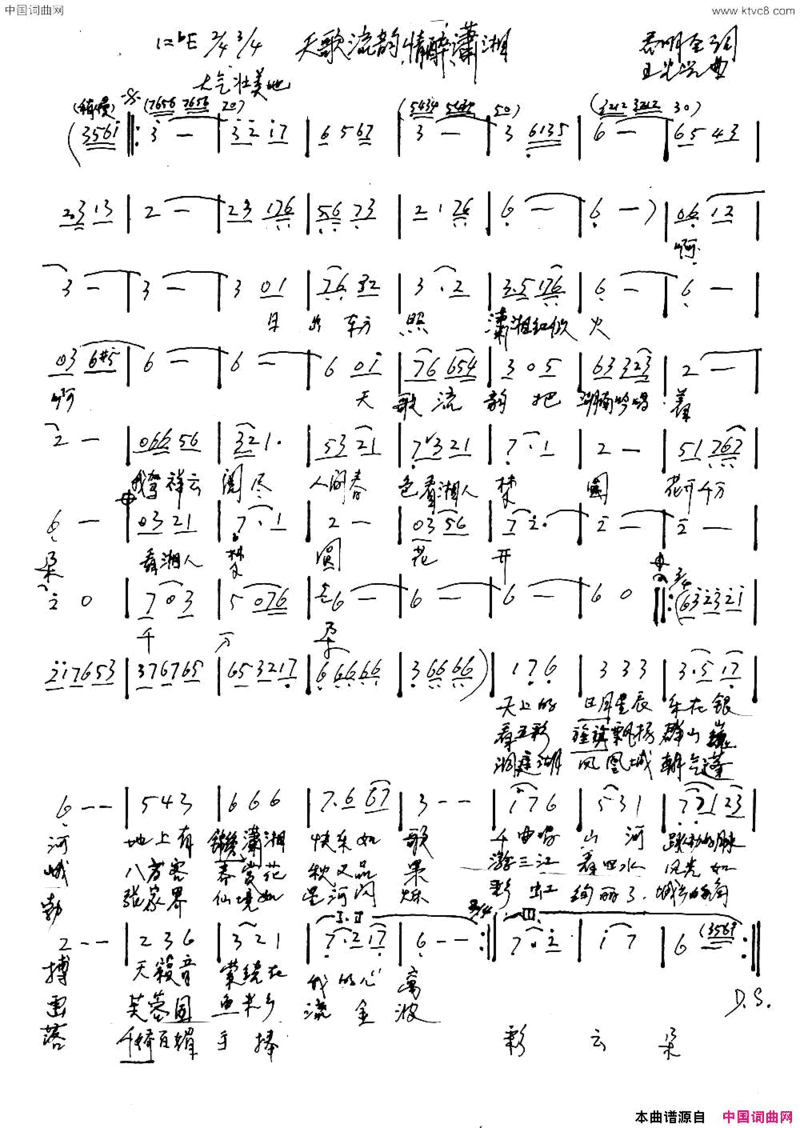 中国词曲网
www.ktvc8.com
1=bE 2/4 3/4 天歌流韵情醉潇湘
王 曲
大气壮美地
(稍慢) (7656 7656 70) (5434 5434 50) (3212 3212 30)
(3561 3 — 32 17 6 567 3 — 3 6135 6 — 65 43
2313 2 — 23 176 56 723 2·176 6 — 6 —) 06 12
啊
3 — 3 — 3 01 76 32 3·2 3·5 176 6 — 6 —
日 出 东方 照 潇湘红似 火
03 6#5 6 — 6 — 6 01 76 654 3 05 63 323 2 —
啊 天 歌 流 韵 把 湖南吟唱
2 — 066 56 321· 53 21 7 321 7·1 2 — 51 767
我驾祥云 阅尽 人间春 色看湘人 梦 圆 花开千万
6 — 03 21 7·1 2 — 03 56 72· 2 — 2 —
朵 看湘人 梦 圆 花 开
2 0 7 03 5 076 6 — 6 — 6 — 6 0 3/4 (632321
千 万 朵
217653 376765 653217 6 66 66 3 66 66) 1 7 6 3 3 3 3·5 17
天上的 日月星辰 坐在银
看五彩 旌旗飘扬 群山巍
洞庭湖 凤凰城 朝气蓬
6 — — 5 4 3 6 6 6 7·6 67 3 — — 1 7 6 5 3 1 7 21 23
河 地上有 锦绣潇湘 快乐如 歌 千曲 山 河 跳动的脉
峨 八方客 春赏花 秋又品 果 游三江 看四水 风光如
勃 张家界 仙境如 星河闪 烁 彩 虹 绚丽了 城乡的角
2 — — 2 3 6 3 2 1 7·2 17 6 — — 2/4 7·2 1 7 6 (3561)
I.II III
搏 天籁音 萦绕在 我的心 窝
画 芙蓉国 鱼米乡 流金 波
落 千娇百媚 手捧 彩 云 朵
D.S.
本曲谱源自 中国词曲网